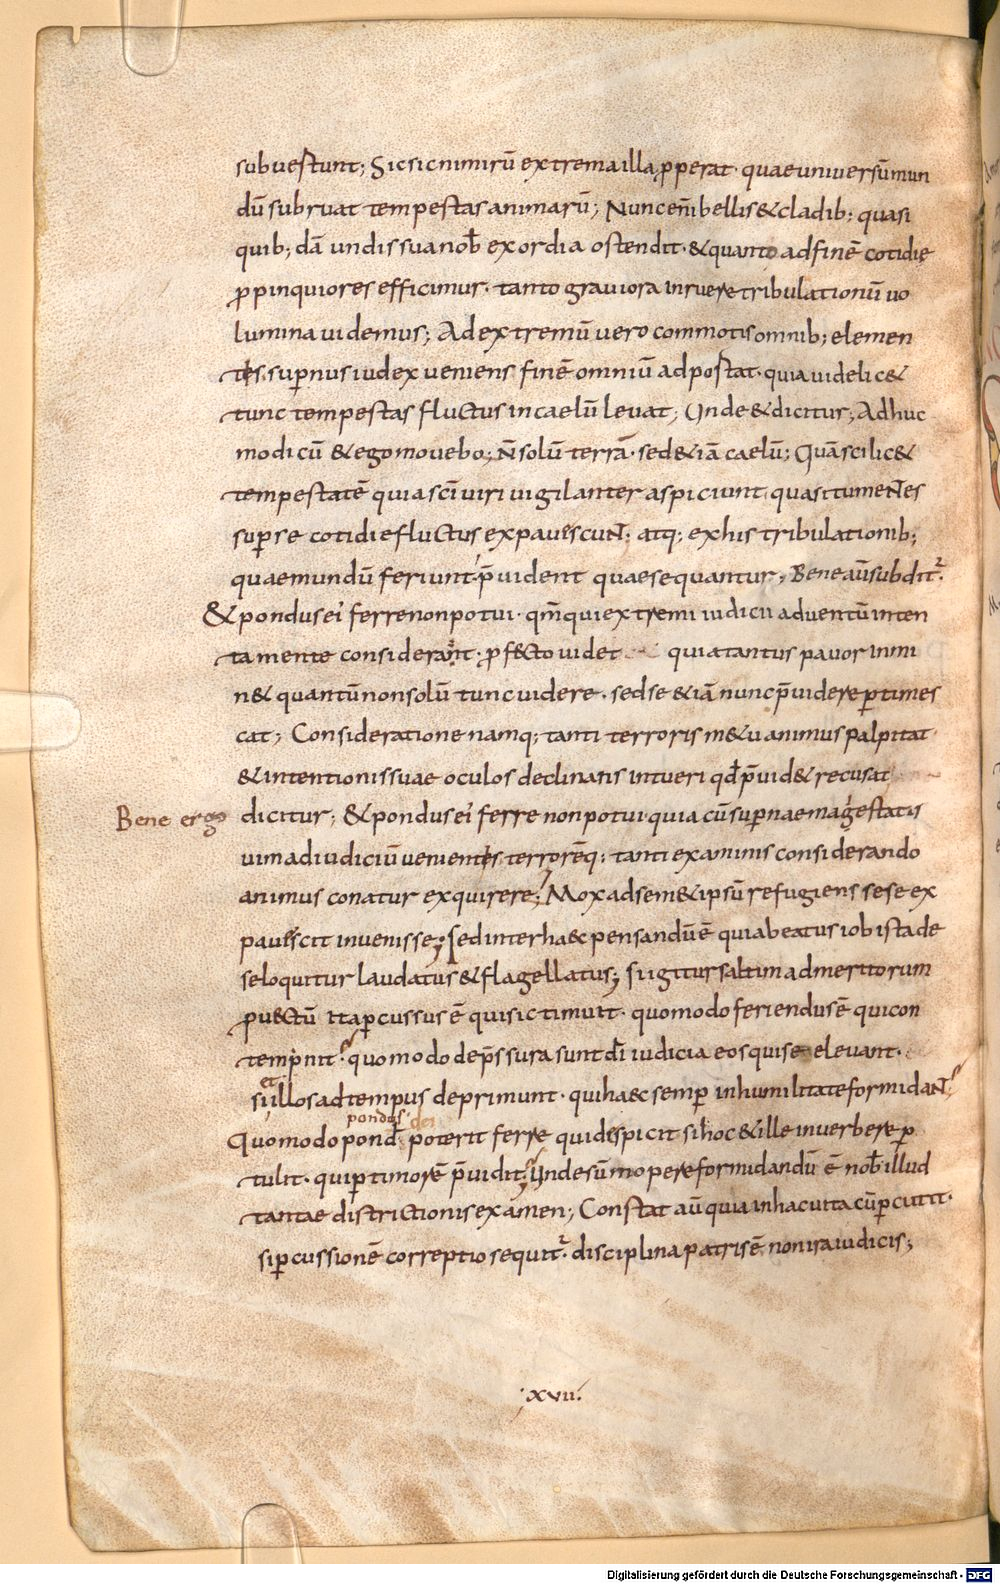 subuestunt; Sic sic nimirū extrema illa ꝓperat· quae uniuersū mun
dū subruat tempestas animarū; Nunc eni̅ bellis & cladib; quasi
quib; dā undis sua nob̅ exordia ostendit· & quanto ad finē cotidie
ꝓpinquiores efficimur· tanto grauiora inruere tribulationū uo
lumina uidemus; Ad extremū uero commotis omnib; elemen
tis· sup̅nus iudex ueniens finē omniū adpostat· quia uidelic&
tunc tempestas fluctus in caelū leuat; Unde & dicitur; Adhuc
modicū & ego mouebo; N̅ solū terrā· sed & iā caelū; Quā scilic&
tempestatē quia sc̅i uiri uigilanter aspiciunt quasi tumentes
sup̅ se cotidie fluctus expauescunt; atq; ex his tribulationib;
quae mundū feriunt· p̅uident quae sequantur; Bene aū subdit᷒·
& pondus ei ferre non potui· qm̅ qui extremi iudicii aduentū inten
ta mente considerant· ꝓf&o uidet quia tantus pauor inmi
n& quantū non solū tunc uidere· sed se & iā nunc p̅uidere ꝑtimes
cat; Consideratione namq; tanti terroris m&u animus palpitat·
& intentionis suae oculos declinatis intueri qd̅ p̅uid& recusat
Bene ergo dicitur; & pondus ei ferre non potui· quia cū sup̅nae magestatis
uim ad iudiciū uenientis terrorēq; tanti examinis considerando
animus conatur exquirere; Mox ad sem&ipsū refugiens sese ex
pauescit inuenisse; Sed inter haec pensandū ē quia beatus iob ista de
se loquitur laudatus & flagellatus; si igitur saltim ad meritorum
ꝓuectū ita ꝑcussus ē qui sic timuit· quomodo feriendus ē qui con
temp̅nit· quomodo dep̅ssura sunt dī iudicia eos qui se eleuant·
et
si illos ad tempus deprimunt· qui haec semꝑ in humilitate formidant
pondus dei
Quomodo pond̅ poterit ferre qui despicit si hoc & ille in uerbere ꝑ
tulit· qui ꝑ timorē p̅uidit; Unde sūmopere formidandū ē nob̅ illud
tantae districtionis examen; Constat aū quia in hac uita cū ꝑcutit·
si ꝑcussionē correptio sequit᷒· disciplina patris ē non ira iudicis;
·xvii·
Digitalisierung gefördert durch die Deutsche Forschungsgemeinschaft - DFG